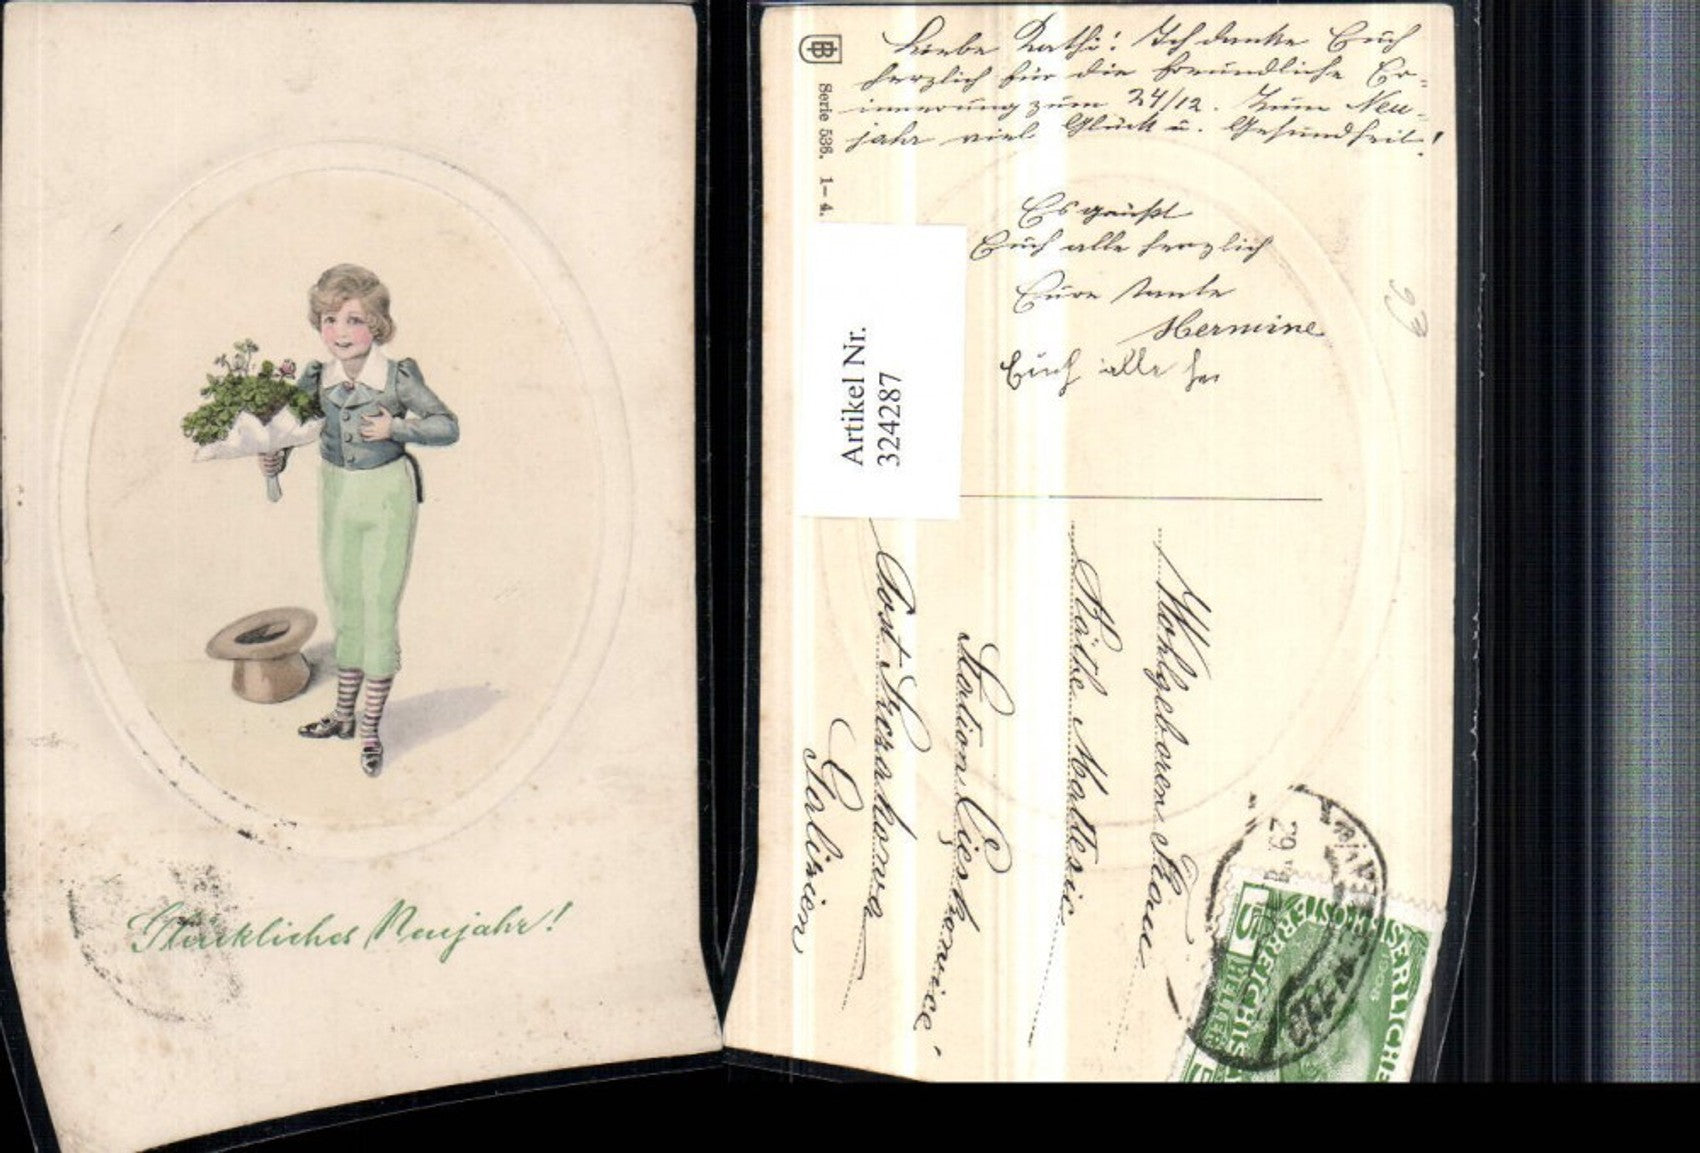 Glückliches Neujahr!
Liebe Kathi! Ich danke Euch
herzlich für die freundliche Er-
innerung zum 24/12. Zum Neu-
jahr viel Glück u. Gesundheit!
Es grüßt
Euch alle herzlich
Eure Tante
Hermine
Euch alle he
B
Serie 536. 1–4.
Artikel Nr.
324287
Wohlgeboren Frau
Käthe
Station
Post
Galizien
29
KAISERLICHE
ÖSTERREICHIS
5 HELLER 5